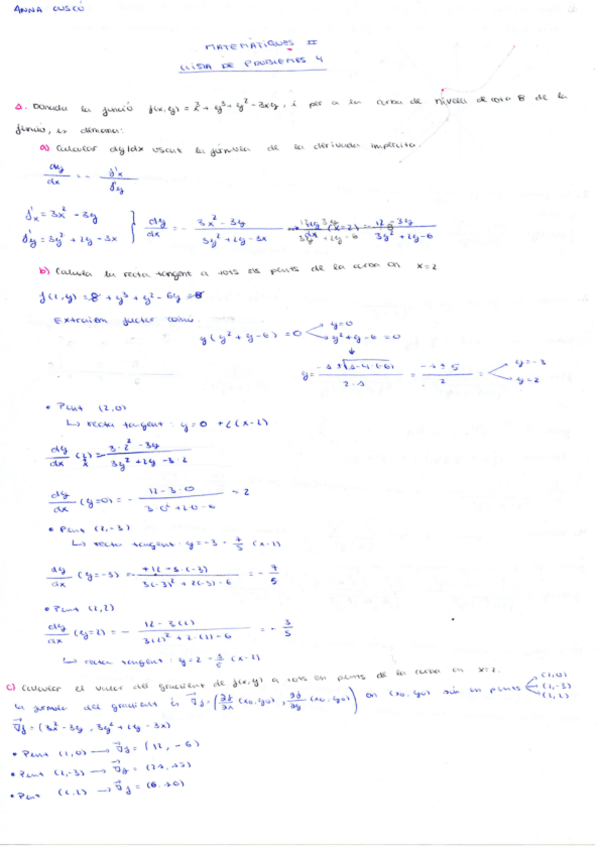 ANNA CUSCÓ
MATEMÀTIQUES II
LLISTA DE PROBLEMES 4
1. Donada la funció f(x,y) = x³ + y³ + y² - 3xy, i per a la corba de nivell de cota 8 de la
funció, es demana:
a) Calcular dy/dx usant la fórmula de la derivada implícita.
dy/dx = - f'x / f'y
f'x = 3x² - 3y
f'y = 3y² + 2y - 3x } dy/dx = - (3x² - 3y) / (3y² + 2y - 3x) (x=2) = (12 - 3y) / (3y² + 2y - 6)
b) Calcula la recta tangent a tots els punts de la corba on x=2
f(2,y) = 8 + y³ + y² - 6y = 8
Extraiem factor comú
y(y² + y - 6) = 0 y=0
y² + y - 6 = 0
y = (-1 ± √(1 - 4·(-6))) / (2·1) = (-1 ± 5) / 2 = y = -3
y = 2
• Punt (2,0)
↳ recta tangent: y = 0 + 2(x-2)
dy/dx (2) = (3·2² - 3y) / (3y² + 2y - 3·2)
dy/dx (y=0) = - (12 - 3·0) / (3·0² + 2·0 - 6) = 2
• Punt (2,-3)
↳ recta tangent: y = -3 - 7/5 (x-2)
dy/dx (y=-3) = (+12 - 3·(-3)) / (3(-3)² + 2(-3) - 6) = - 7/5
• Punt (2,2)
dy/dx (y=2) = - (12 - 3(2)) / (3(2)² + 2·(2) - 6) = - 3/5
↳ recta tangent: y = 2 - 3/5 (x-2)
c) Calcular el valor del gradient de f(x,y) a tots els punts de la corba on x=2.
la fórmula del gradient és ∇f = (∂f/∂x (x₀,y₀), ∂f/∂y (x₀,y₀)) on (x₀,y₀) són els punts (2,0)
(2,-3)
(2,2)
∇f = (3x² - 3y, 3y² + 2y - 3x)
• Punt (2,0) → ∇f = (12, -6)
• Punt (2,-3) → ∇f = (21, 15)
• Punt (2,2) → ∇f = (6, 10)